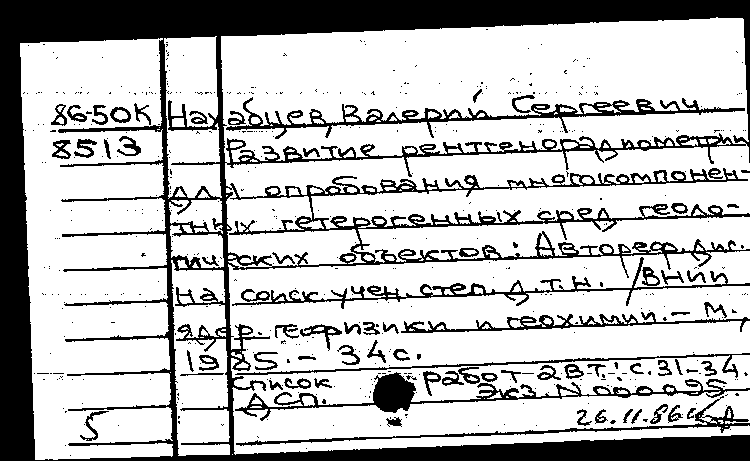 86-50К Нахабцев, Валерий Сергеевич
8513 Развитие рентгенорадиометрии
для опробования многокомпонен-
тных гетерогенных сред геоло-
гических объектов: Автореф. дис.
на соиск. учен. степ. д.т.н. /ВНИИ
ядер. геофизики и геохимии. – М.,
1985. – 34с.
Список работ авт.: с.31–34.
ДСП. Экз. N 000095.
5 26.11.86